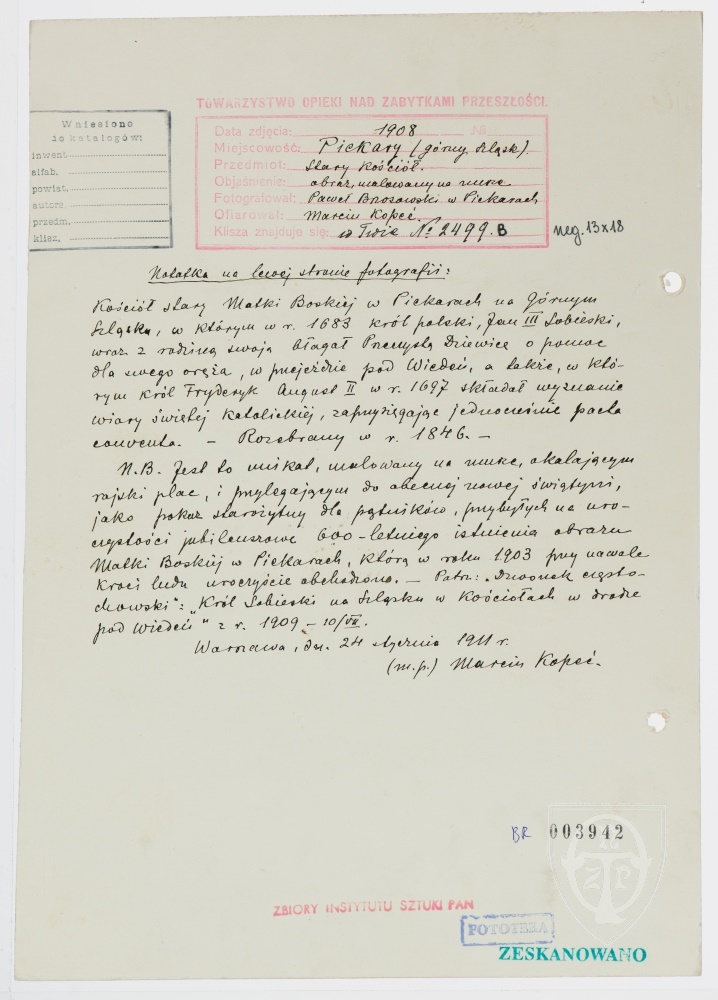 TOWARZYSTWO OPIEKI NAD ZABYTKAMI PRZESZŁOŚCI.
Wniesiono
do katalogów:
inwent.
alfab.
powiat.
autora.
przedm.
klisz.
Data zdjęcia: 1908 №
Miejscowość: Piekary (górny Szląsk).
Przedmiot: Stary Kościół.
Objaśnienie: obraz, malowany na murze
Fotografował: Paweł Brzozowski w Piekarach
Ofiarował: Marcin Kopeć.
Klisza znajduje się: w Twie № 2499. B
neg. 13x18
Notatka na lewej stronie fotografii:
Kościół stary Matki Boskiej w Piekarach na Górnym
Szląsku, w którym w r. 1683 król polski, Jan III Sobieski,
wraz z rodziną swoją błagał Przenajśw. Dziewicę o pomoc
dla swego oręża, w przejeździe pod Wiedeń, a także, w któ-
rym Król Fryderyk August II w r. 1697 składał wyznanie
wiary świętej katolickiej, zaprzysięgając jednocześnie pacta
conventa. — Rozebrany w r. 1846. —
N.B. Jest to unikat, malowany na murze, okalającym
rajski plac, i przylegającym do obecnej nowej świątyni,
jako pokaz starożytny dla pątników, przybyłych na uro-
czystości jubileuszowe 600-letniego istnienia obrazu
Matki Boskiej w Piekarach, którą w roku 1903 przy nawale
kroci ludu uroczyście obchodzono. — Patrz: "Dzwonek często-
chowski": "Król Sobieski na Szląsku w Kościołach w drodze
pod Wiedeń" z r. 1909 – 10/VII.
Warszawa, dn. 24 stycznia 1911 r.
(m.p.) Marcin Kopeć.
BR 003942
ZBIORY INSTYTUTU SZTUKI PAN
FOTOTEKA
ZESKANOWANO